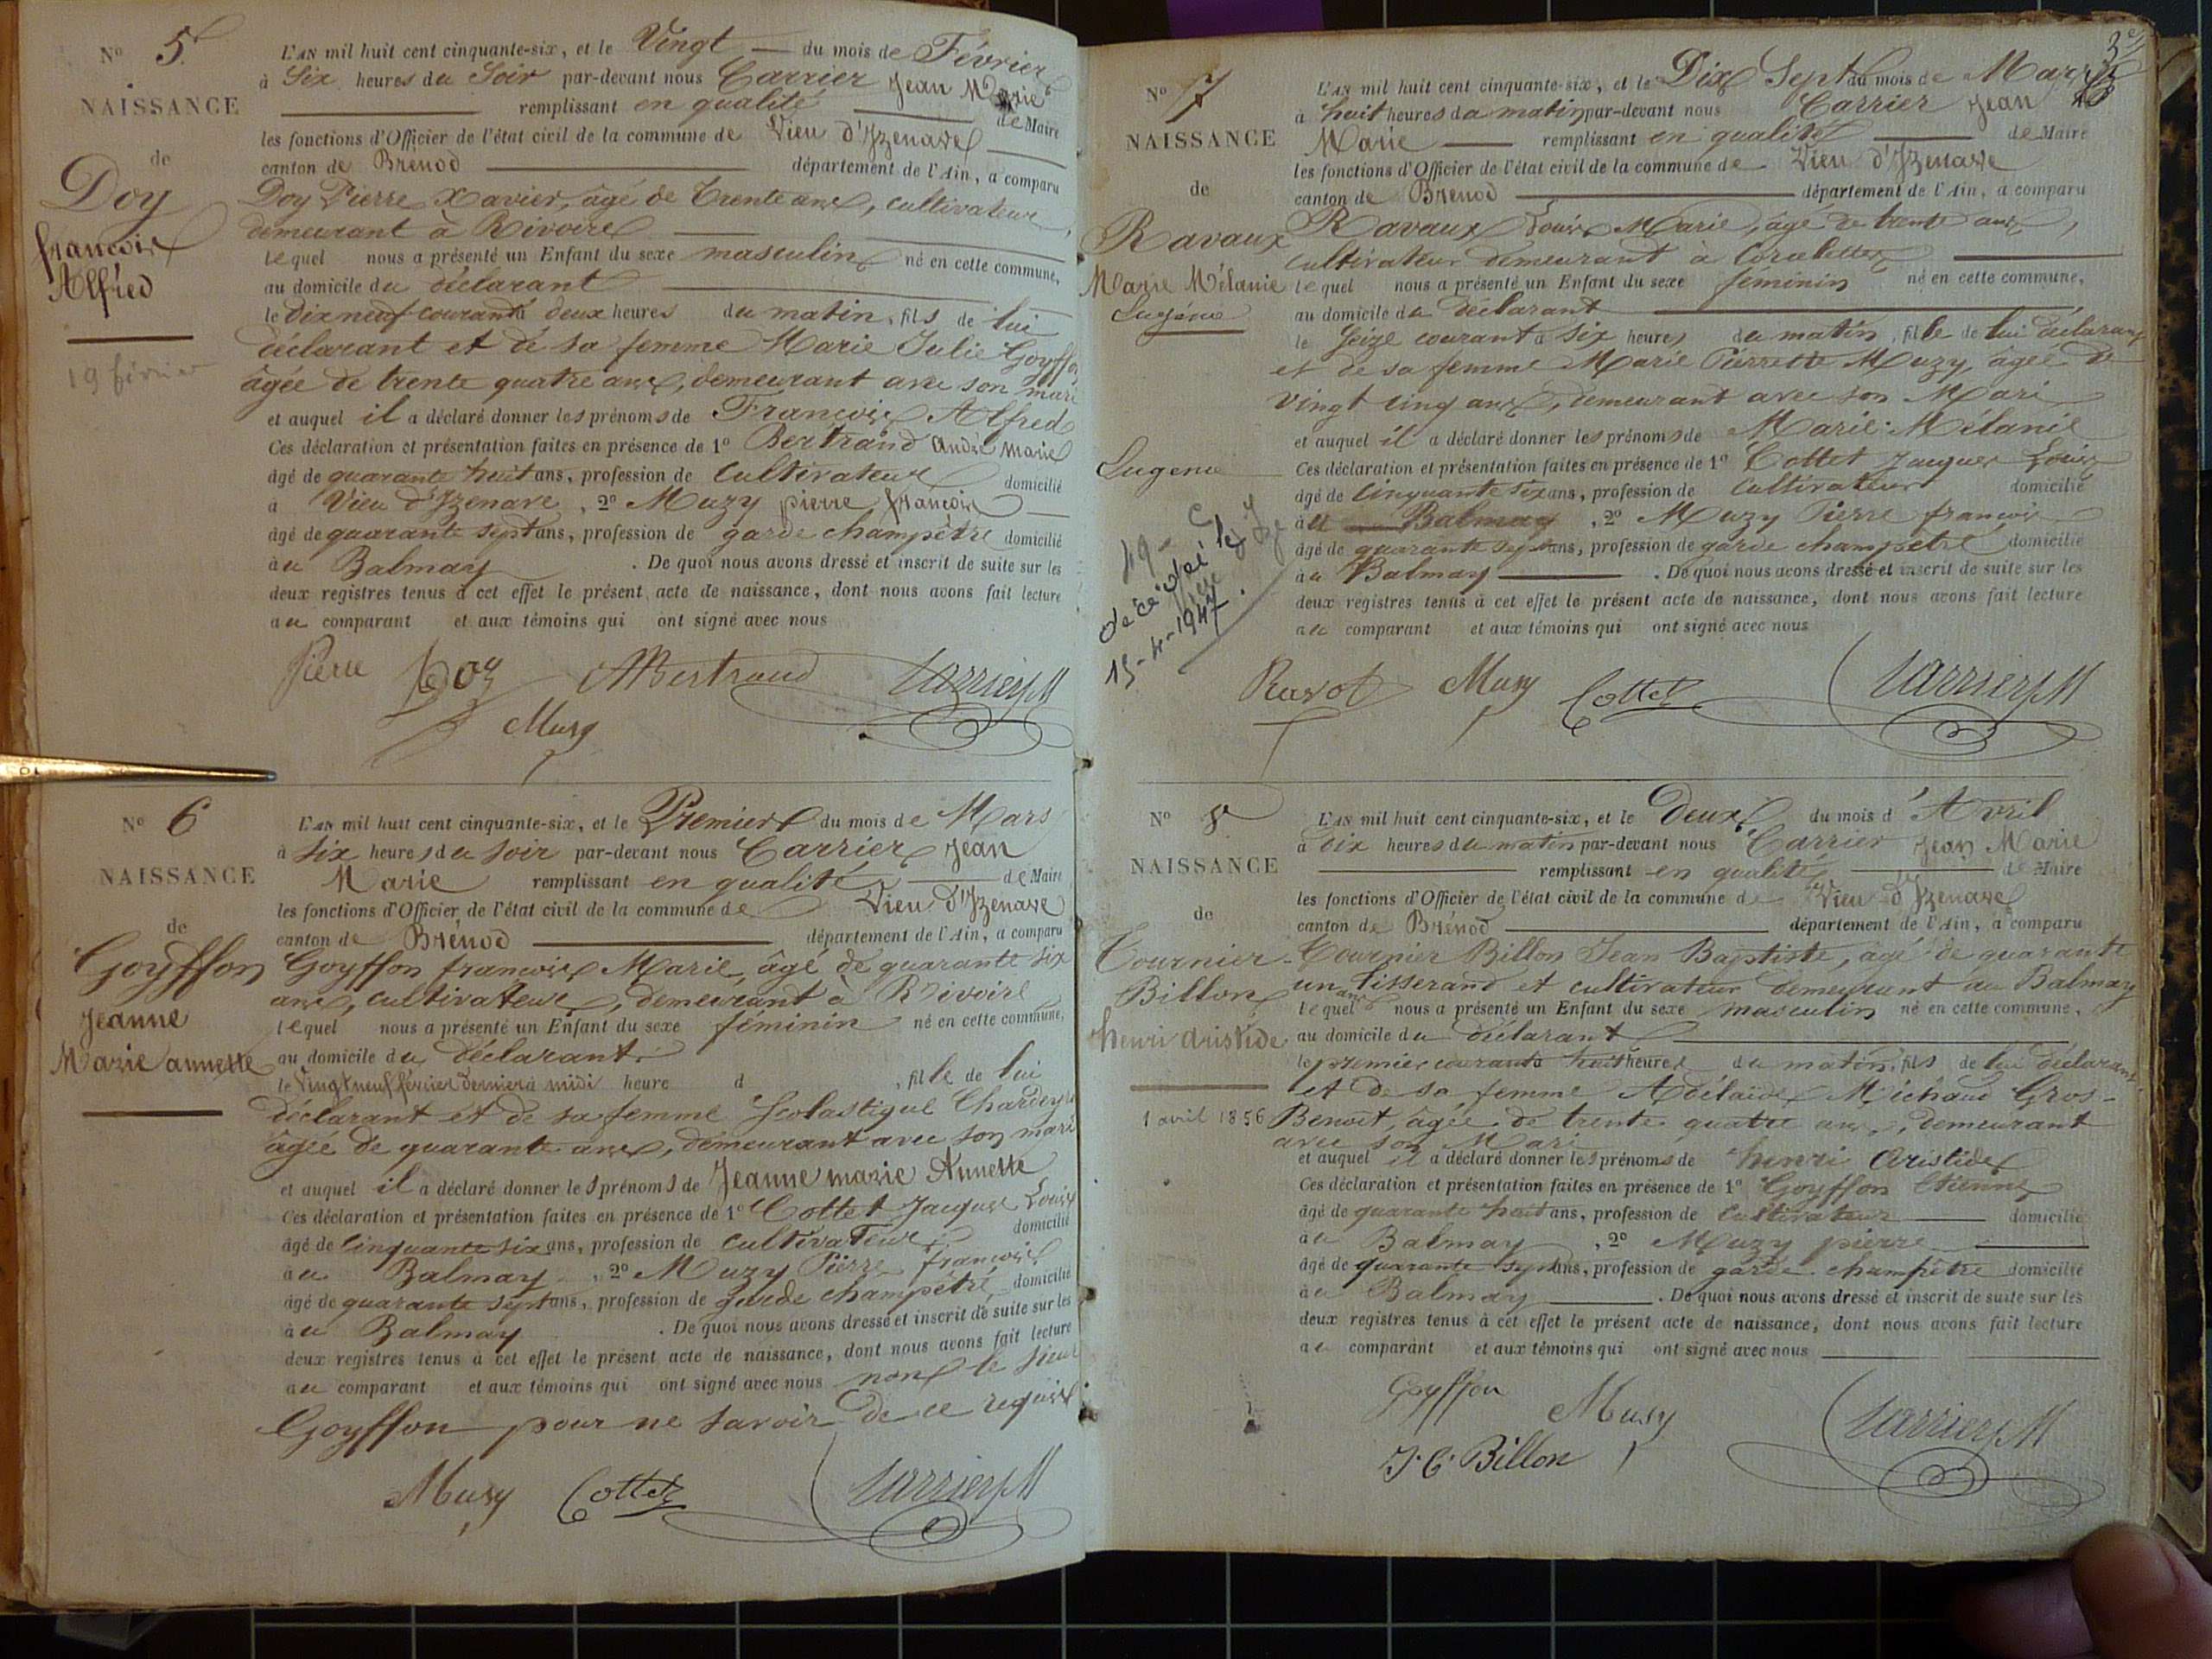 N° 5.
NAISSANCE
de
Doy
françois
Alfred
19 février
L'AN mil huit cent cinquante-six, et le Vingt du mois de Février
à Six heures du Soir par-devant nous Carrier Jean Marie
remplissant en qualité de Maire
les fonctions d'Officier de l'état civil de la commune de Vieu d'Izenave
canton de Brenod département de l'Ain, a comparu
Doy Pierre Xavier, âgé de trente ans, cultivateur,
demeurant à Rivoire
lequel nous a présenté un Enfant du sexe masculin né en cette commune,
au domicile du déclarant
le dix neuf courant à deux heures du matin, fils de lui
déclarant et de sa femme Marie Julie Goyffon
âgée de trente quatre ans, demeurant avec son mari
et auquel il a déclaré donner les prénoms de François Alfred
Ces déclaration et présentation faites en présence de 1° Bertrand André Marie
âgé de quarante huit ans, profession de Cultivateur domicilié
à Vieu d'Izenave, 2° Muzy pierre françois
âgé de quarante sept ans, profession de garde champêtre domicilié
à au Balmay. De quoi nous avons dressé et inscrit de suite sur les
deux registres tenus à cet effet le présent acte de naissance, dont nous avons fait lecture
au comparant et aux témoins qui ont signé avec nous
Pierre Doy Bertrand Carrier JM
Musy
N° 6
NAISSANCE
de
Goyffon
Jeanne
Marie annette
L'AN mil huit cent cinquante-six, et le Premier du mois de Mars
à Six heures du Soir par-devant nous Carrier Jean
Marie remplissant en qualité de Maire
les fonctions d'Officier de l'état civil de la commune de Vieu d'Izenave
canton de Brénod département de l'Ain, a comparu
Goyffon françois Marie, âgé de quarante six
ans, cultivateur, demeurant à Rivoire
lequel nous a présenté un Enfant du sexe féminin né en cette commune,
au domicile du déclarant
le Vingt neuf février dernier à midi heure d , fille de lui
déclarant et de sa femme Scolastique Chardeyre
âgée de quarante ans, demeurant avec son mari
et auquel il a déclaré donner les prénoms de Jeanne marie Annette
Ces déclaration et présentation faites en présence de 1° Cottet Jacques Louis
âgé de cinquante six ans, profession de cultivateur domicilié
à au Balmay, 2° Muzy Pierre françois
âgé de quarante sept ans, profession de garde champêtre, domicilié
à au Balmay. De quoi nous avons dressé et inscrit de suite sur les
deux registres tenus à cet effet le présent acte de naissance, dont nous avons fait lecture
au comparant et aux témoins qui ont signé avec nous non le sieur
Goyffon pour ne savoir de ce requis
Musy Cottet Carrier JM
3e
N° 7
NAISSANCE
de
Ravaux
Marie Mélanie
Eugénie
Eugenie
décédé le
15-4-1947.
L'AN mil huit cent cinquante-six, et le Dix Sept du mois de Mars
à huit heures du matin par-devant nous Carrier Jean
Marie remplissant en qualité de Maire
les fonctions d'Officier de l'état civil de la commune de Vieu d'Izenave
canton de Brenod département de l'Ain, a comparu
Ravaux Louis Marie, âgé de trente ans,
cultivateur demeurant à Corcelette
lequel nous a présenté un Enfant du sexe féminin né en cette commune,
au domicile du déclarant
le Seize courant à six heures du matin, fille de lui déclarant
et de sa femme Marie Pierrette Muzy, âgée de
vingt cinq ans, demeurant avec son Mari
et auquel il a déclaré donner les prénoms de Marie Mélanie
Ces déclaration et présentation faites en présence de 1° Cottet Jacques Louis
âgé de cinquante six ans, profession de Cultivateur domicilié
à au Balmay, 2° Muzy Pierre françois
âgé de quarante sept ans, profession de garde champêtre domicilié
à au Balmay. De quoi nous avons dressé et inscrit de suite sur les
deux registres tenus à cet effet le présent acte de naissance, dont nous avons fait lecture
au comparant et aux témoins qui ont signé avec nous
Ravot Musy Cottet Carrier JM
N° 8
NAISSANCE
de
Tournier-
Billon
henri aristide
1 avril 1856
L'AN mil huit cent cinquante-six, et le Deux du mois d'Avril
à dix heures du matin par-devant nous Carrier Jean Marie
remplissant en qualité de Maire
les fonctions d'Officier de l'état civil de la commune de Vieu d'Izenave
canton de Brénod département de l'Ain, a comparu
Tournier Billon Jean Baptiste, âgé de quarante
un ans tisserand et cultivateur demeurant au Balmay
lequel nous a présenté un Enfant du sexe masculin né en cette commune,
au domicile du déclarant
le premier courant à huit heures du matin, fils de lui déclarant
et de sa femme Adélaïde Michaud Gros-
Benoit, âgée de trente quatre ans, demeurant
avec son Mari
et auquel il a déclaré donner les prénoms de henri Aristide
Ces déclaration et présentation faites en présence de 1° Goyffon Etienne
âgé de quarante huit ans, profession de Cultivateur domicilié
à au Balmay, 2° Muzy pierre
âgé de quarante sept ans, profession de garde champêtre domicilié
à au Balmay. De quoi nous avons dressé et inscrit de suite sur les
deux registres tenus à cet effet le présent acte de naissance, dont nous avons fait lecture
au comparant et aux témoins qui ont signé avec nous
Goyffon Musy Carrier JM
J. C. Billon